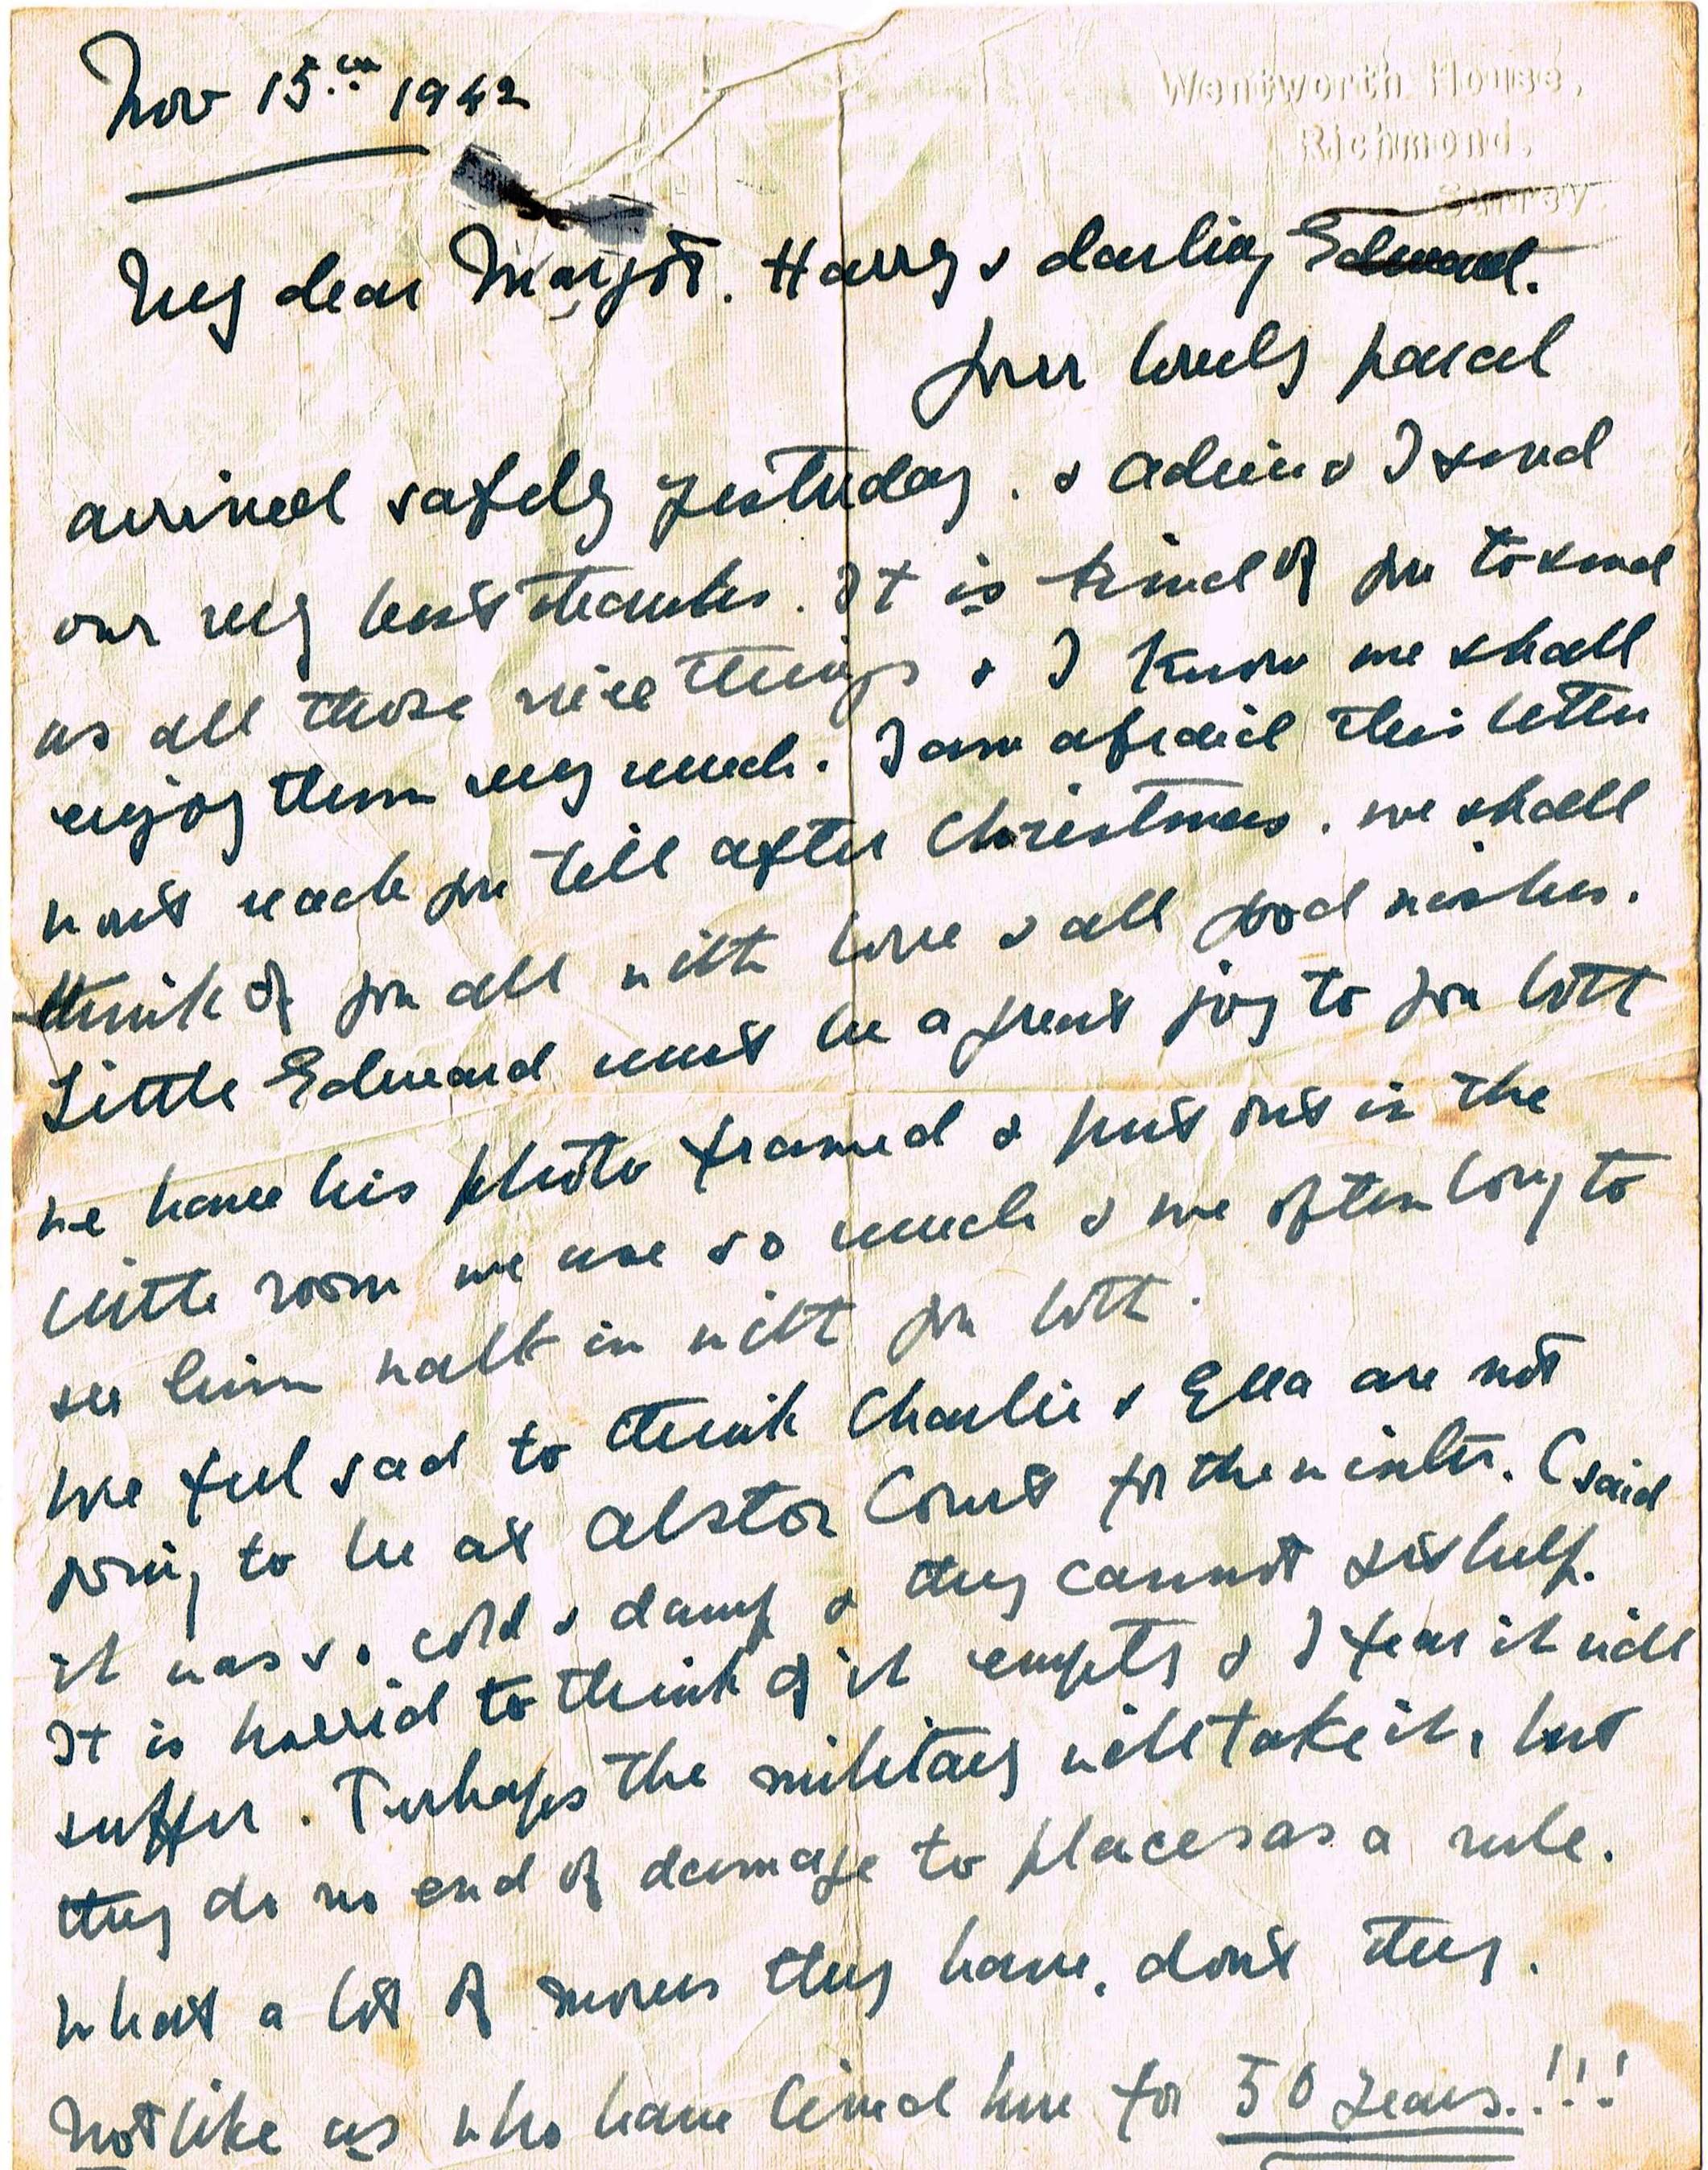 Nov 15th 1942
Wentworth House,
Richmond,
Surrey.
My dear Margot. Harry & darling Edward.
Your lovely parcel
arrived safely yesterday. & Adrian & I send
our very best thanks. It is kind of you to send
us all those nice things & I know we shall
enjoy them very much. I am afraid this letter
wont reach you till after Christmas. we shall
think of you all with love & all good wishes.
Little Edward must be a great joy to you both
we have his photo framed & put out in the
little room we use so much & we often long to
see him walk in with you both.
We feel sad to think Charlie & Ella are not
going to be at Alstor Court for the winter. (said
it was so cold & damp & they cannot get help.
It is horrid to think of it empty & I fear it will
suffer. Perhaps the military will take it, but
they do no end of damage to places as a rule.
What a lot of moves they have, dont they.
Not like us who have lived here for 50 years.!!!